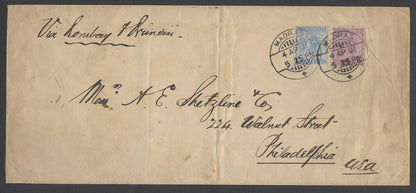 Via Bombay & Brindisi
MADRAS
4 AP 01
5 25 PM
MADRAS
4 AP 01
5 25 PM
Messrs A. E. Shetzline & Co
224 Walnut Street
Philadelphia
USA